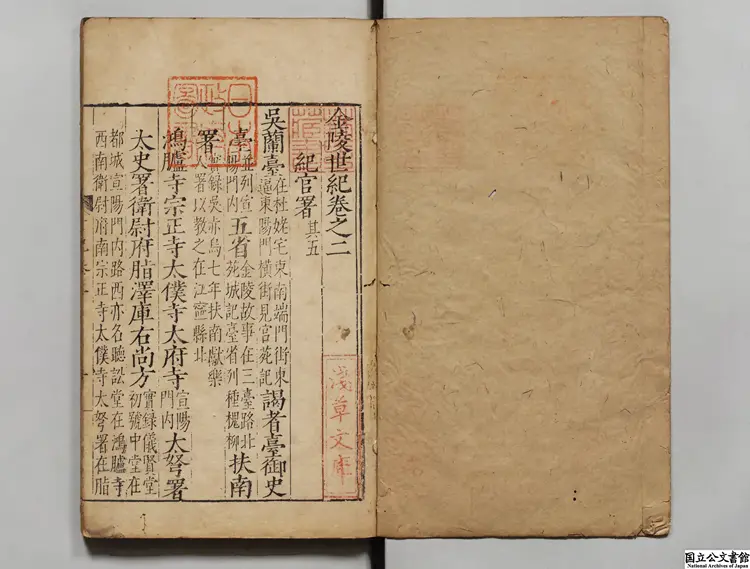 金陵世紀卷之二
紀官署 其五
吳蘭臺 在杜姥宅東南端門街東 逼東陽門橫街見宮苑記 謁者臺御史
臺 並列宣 陽門內 五省 金陵故事在三臺路北 苑城記臺省列種槐柳 扶南
署 實錄吳赤烏七年扶南獻樂 人署以教之在江寧縣北
鴻臚寺宗正寺太僕寺太府寺 宣陽 門內 太弩署
太史署衛尉府脂澤庫右尚方 實錄儀賢堂 初號中堂在
都城宣陽門內路西亦名聽訟堂在鴻臚寺
西南衛尉府南宗正寺太僕寺太弩署在脂
日本政府圖書
淺草文庫
国立公文書館
National Archives of Japan